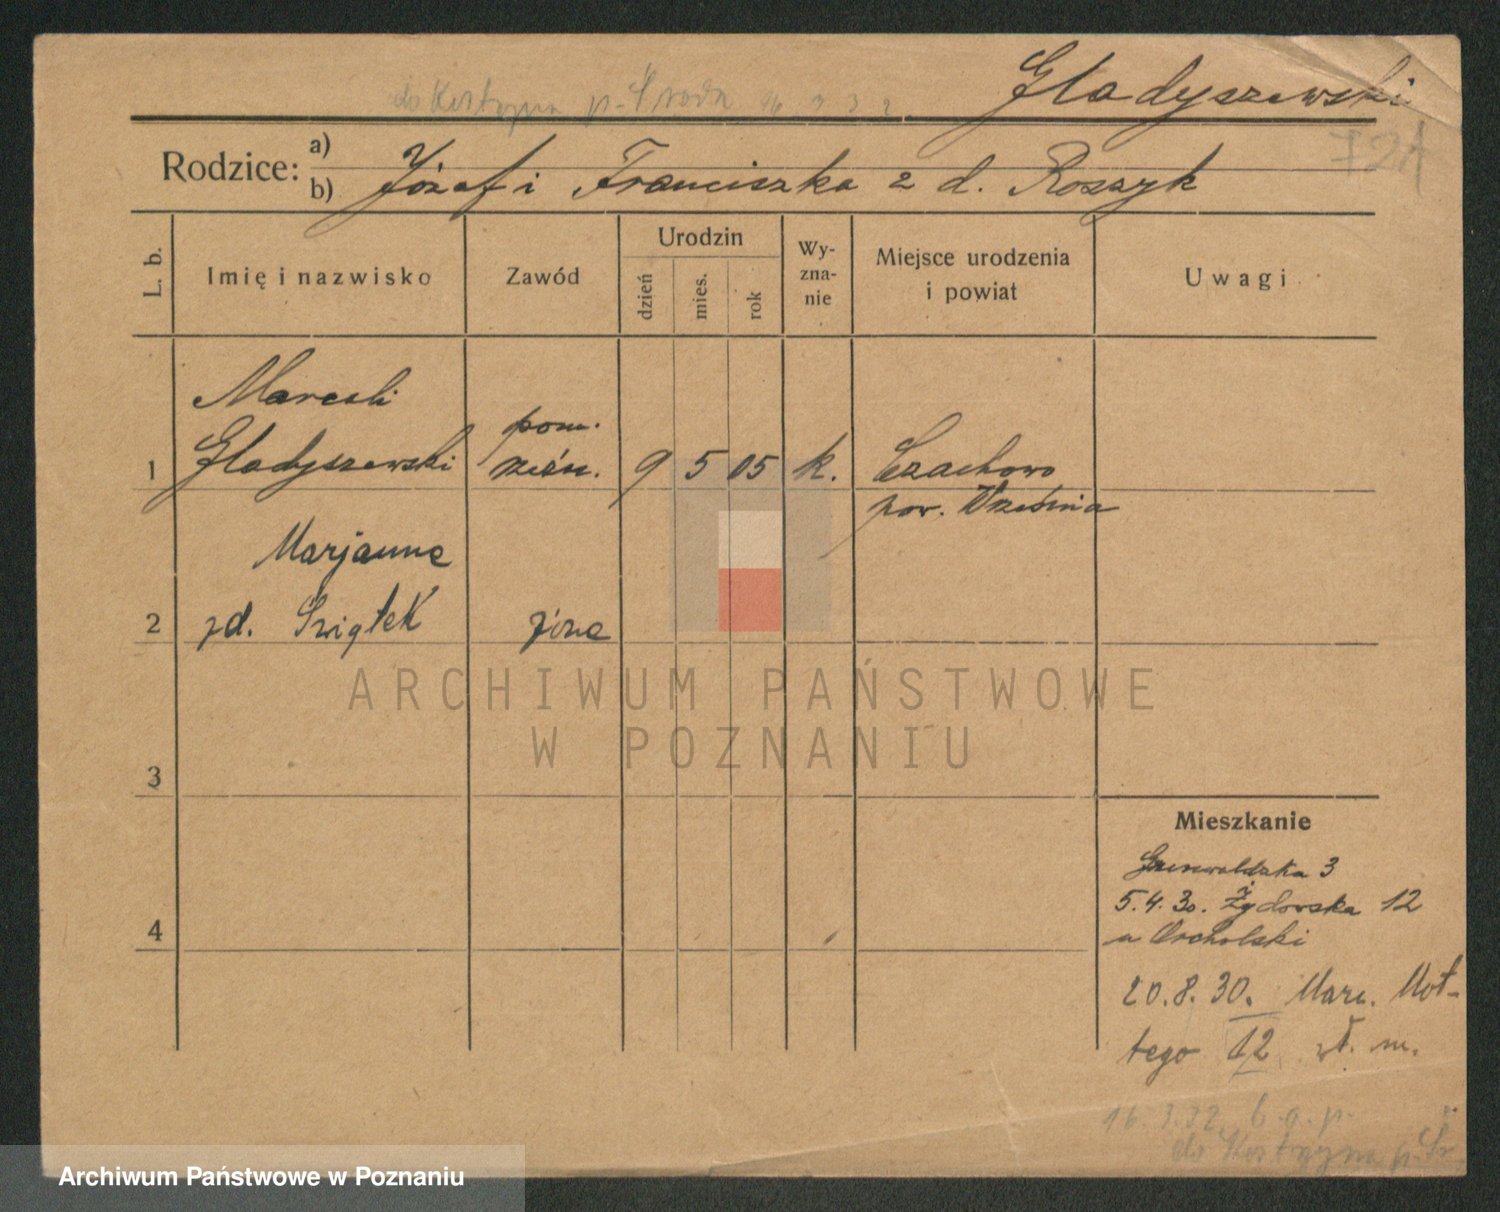 do Kostrzyna p. Środa 16 3 32
Gładyszewski
Rodzice: a)
b) Józef i Franciszka z d. Roszyk
L. b.
Imię i nazwisko
Zawód
Urodzin
dzień
mies.
rok
Wy-
zna-
nie
Miejsce urodzenia
i powiat
Uwagi
Marceli
pom.
1 Gładyszewski rzeźn. 9 5 05 k. Czachowo
pow. Września
Marjanna
2 zd. Świątek żona
ARCHIWUM PAŃSTWOWE
W POZNANIU
3
Mieszkanie
Grunwaldzka 3
5.4.30. Żydowska 12
u Orcholski
4
20.8.30. Marc. Mot-
tego 12 wł. m.
16.3.32 b.a.p.
do Kostrzyna p. Śr
Archiwum Państwowe w Poznaniu